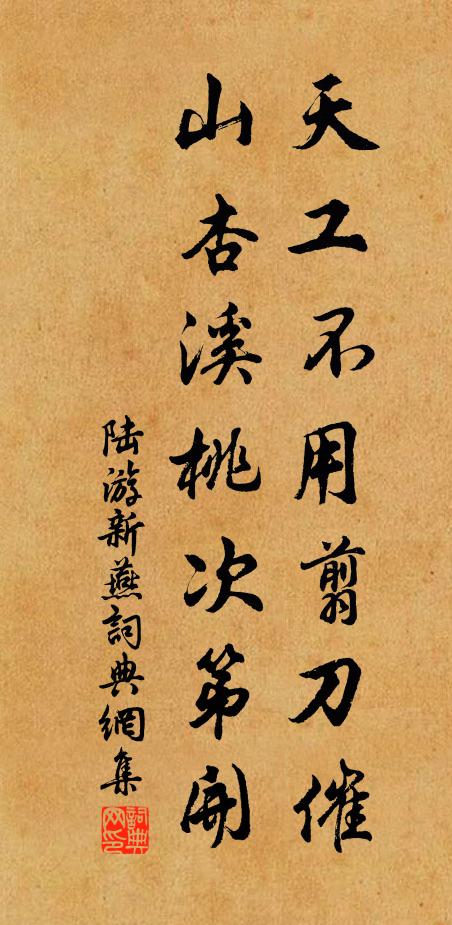 天工不用剪刀催
山杏溪桃次第開
陆游新燕詞典網集
詞典网印